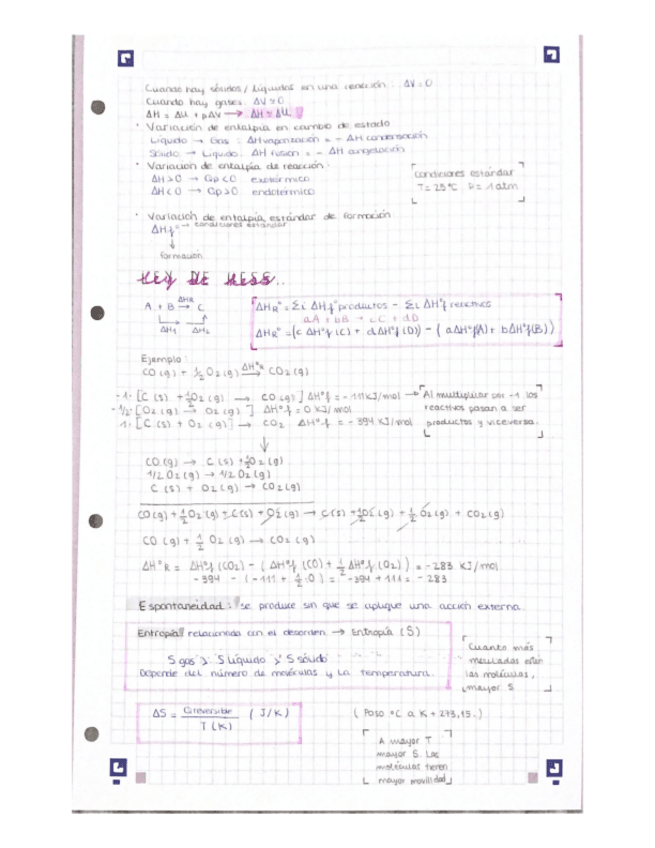 Cuando hay sólidos / líquidos en una reacción: ΔV = 0
Cuando hay gases: ΔV ≈ 0
ΔH = ΔU + pΔV → ΔH ≈ ΔU
· Variación de entalpía en cambio de estado
Líquido → Gas : ΔH vaporización = - ΔH condensación
Sólido → Líquido: ΔH fusión = - ΔH congelación
· Variación de entalpía de reacción:
ΔH > 0 → Qp < 0 exotérmico
ΔH < 0 → Qp > 0 endotérmico
Condiciones estándar
T = 25°C P = 1 atm
· Variación de entalpía estándar de formación
ΔHf° → condiciones estándar
↓
formación
LEY DE HESS..
A + B ΔHR→ C
ΔH1 ΔH2
ΔHR° = Σi ΔHf° productos - Σi ΔH°f reactivos
aA + bB → cC + dD
ΔHR° = (c ΔH°f (C) + dΔH°f (D)) - ( aΔH°f(A) + bΔH°f(B))
Ejemplo:
CO (g) + 1/2 O2 (g) ΔH°R→ CO2 (g)
-1· [C (s) + 1/2 O2 (g) → CO (g) ] ΔH°f = - 111 KJ/mol → Al multiplicar por -1 los
-1/2· [O2 (g) → O2 (g) ] ΔH°f = 0 KJ/mol reactivos pasan a ser
1· [C (s) + O2 (g)] → CO2 ΔH°f = - 394 KJ/mol productos y viceversa.
↓
CO (g) → C (s) + 1/2 O2 (g)
1/2 O2 (g) → 1/2 O2 (g)
C (s) + O2 (g) → CO2 (g)
CO (g) + 1/2 O2 (g) + C(s) + O2 (g) → C(s) + 1/2 O2 (g) + 1/2 O2 (g) + CO2 (g)
CO (g) + 1/2 O2 (g) → CO2 (g)
ΔH°R = ΔH°f (CO2) - ( ΔH°f (CO) + 1/2 ΔH°f (O2) ) = - 283 KJ/mol
-394 - (-111 + 1/2·0) = -394 + 111 = - 283
Espontaneidad: se produce sin que se aplique una acción externa.
Entropía: relacionida con el desorden → Entropía (S)
S gas > S líquido > S sólido
Depende del número de moléculas y la temperatura.
Cuanto más
mezcladas están
las moléculas,
mayor S
ΔS = Q reversible / T (K) ( J/K )
( Paso °C a K + 273,15. )
A mayor T
mayor S. Las
moléculas tienen
mayor movilidad